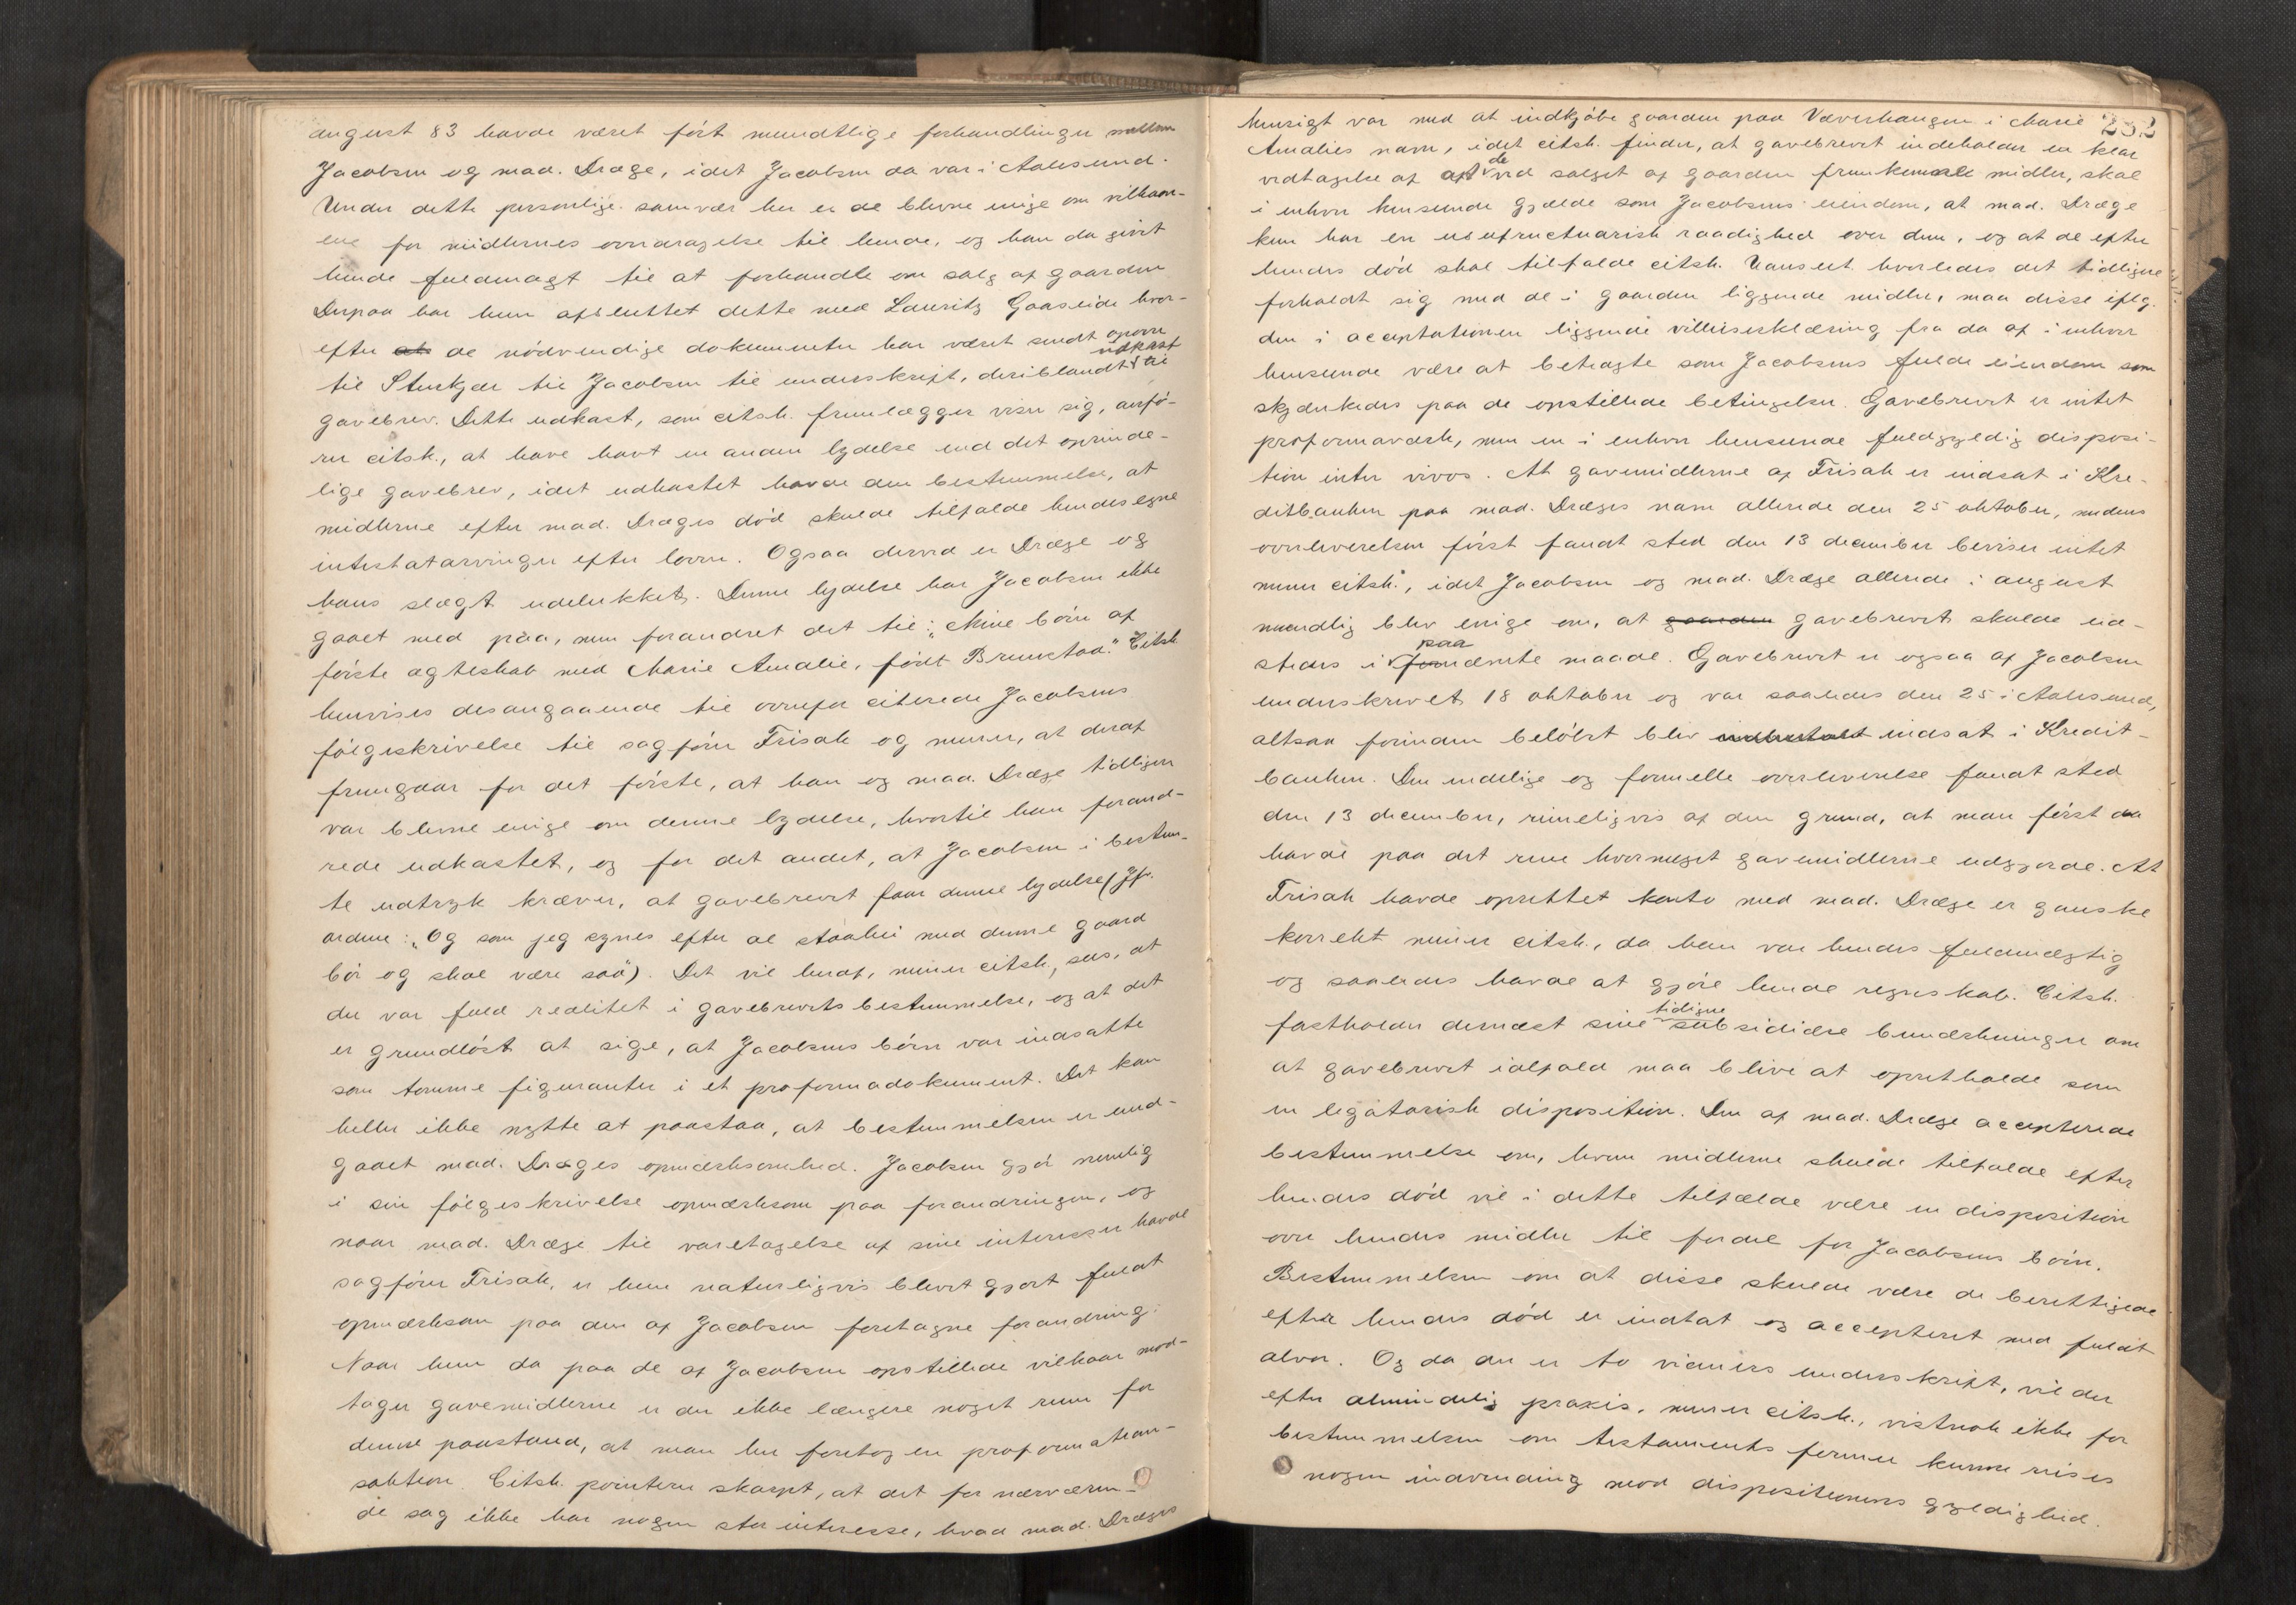 august 83 havde været ført mundtlige forhandlinger mellem
Jacobsen og mad. Dræge, idet Jacobsen da var i Aalesund.
Under dette personlige samvær her er de blevne enige om vilkaar-
ene for midlernes overdragelse til hende, og han da givet
hende fuldmagt til at forhandle om salg af gaarden
Derpaa har hun afsluttet dette med Lauritz Gaaseide hvor-
efter at de nødvendige dokumenter har været sendt opover
til Sturkjær til Jacobsen til underskrift, deriblandt udkast til
gavebrev. Dette udkast, som citsk. fremlægger viser sig, anfø-
rer citsk., at have havt en anden lydelse end det oprinde-
lige gavebrev, idet udkastet havde den bestemmelse, at
midlerne efter mad. Dræges død skulde tilfalde hendes egne
intestatarvinger efter loven. Ogsaa derved er Dræge og
hans slægt udelukket. Denne lydelse har Jacobsen ikke
gaaet med paa, men forandret det til: „Mine børn af
første ægteskab med Marie Amalie, født Brunstad." Citsk
henvises desangaaende til ovenfor citerede Jacobsens
følgeskrivelse til sagfører Frisak og mener, at deraf
fremgaar for det første, at han og mad. Dræge tidligere
var blevne enige om denne lydelse, hvortil han forand-
rede udkastet, og for det andet, at Jacobsen i bestem-
te udtryk kræver, at gavebrevet faar denne lydelse (Jfr.
ordene: „Og som jeg synes efter al staahei med denne gaard
bør og skal være saa"). Det vil heraf, mener citsk, sees, at
der var fuld realitet i gavebrevets bestemmelse, og at det
er grundløst at sige, at Jacobsens børn var indsatte
som tomme figuranter i et proformadokument. Det kan
heller ikke nytte at paastaa, at bestemmelsen er und-
gaaet mad. Dræges opmærksomhed. Jacobsen gjør nemlig
i sin følgeskrivelse opmærksom paa forandringen, og
naar mad. Dræge til varetagelse af sine interesser havde
sagfører Frisak, er hun naturligvis blevet gjort fuldt
opmærksom paa den af Jacobsen foretagne forandring.
Naar hun da paa de af Jacobsen opstillede vilkaar mod-
tager gavemidlerne er der ikke længere noget rum for
denne paastand, at man her foretog en proformatran-
saktion. Citsk. pointerer skarpt, at det for nærværen-
de sag ikke har nogen stor interesse, hvad mad. Dræges
252
hensigt var med at indkjøbe gaarden paa Væverhaugen i Marie
Amalies navn, idet citsk. finder, at gavebrevet indeholder en klar
vedtagelse af at de ved salget af gaarden fremkomne midler, skal
i enhver henseende gjælde som Jacobsens eiendom, at mad. Dræge
kun har en usufructuarisk raadighed over dem, og at de efter
hendes død skal tilfalde citsk. Uanseet hvorledes det tidligere
forholdt sig med de i gaarden liggende midler, maa disse iflg.
den i acceptationen liggende villieserklæring fra da af i enhver
henseende være at betragte som Jacobsens fulde eiendom som
skjænkedes paa de opstillede betingelser. Gavebrevet er intet
proformaværk, men en i enhver henseende fuldgyldig disposi-
tion inter vivos. At gavemidlerne af Frisak er indsat i Kre-
ditbanken paa mad. Dræges navn allerede den 25 oktober, medens
overleverelsen først fandt sted den 13 december beviser intet
mener citsk., idet Jacobsen og mad. Dræge allerede i august
mundtlig blev enige om, at gaarden gavebrevet skulde ud-
stedes i paa nævnte maade. Gavebrevet er ogsaa af Jacobsen
underskrevet 18 oktober og var saaledes den 25 i Aalesund,
altsaa forinden beløbet blev indbetalt indsat i Kredit-
banken. Den endelige og formelle overleverelse fandt sted
den 13 december, rimeligvis af den grund, at man først da
havde paa det rene hvormeget gavemidlerne udgjorde. At
Frisak havde oprettet konto med mad. Dræge er ganske
korrekt mener citsk., da han var hendes fuldmægtig
og saaledes havde at gjøre hende regnskab. Citsk.
fastholder dernæst sine tidligere subsidiære bemærkninger om
at gavebrevet ialfald maa blive at opretholde som
en legatarisk disposition. Den af mad. Dræge accepterede
bestemmelse om, hvem midlerne skulde tilfalde efter
hendes død vil i dette tilfælde være en disposition
over hendes midler til fordel for Jacobsens børn.
Bestemmelsen om at disse skulde være de berettigede
efter hendes død er indtat og accepteret med fuldt
alvor. Og da der er to vidners underskrift, vil der
efter almindelig praxis, mener citsk., vistnok ikke for
bestemmelsen om testaments former kunne reises
nogen indvending mod dispositionens gyldighed.